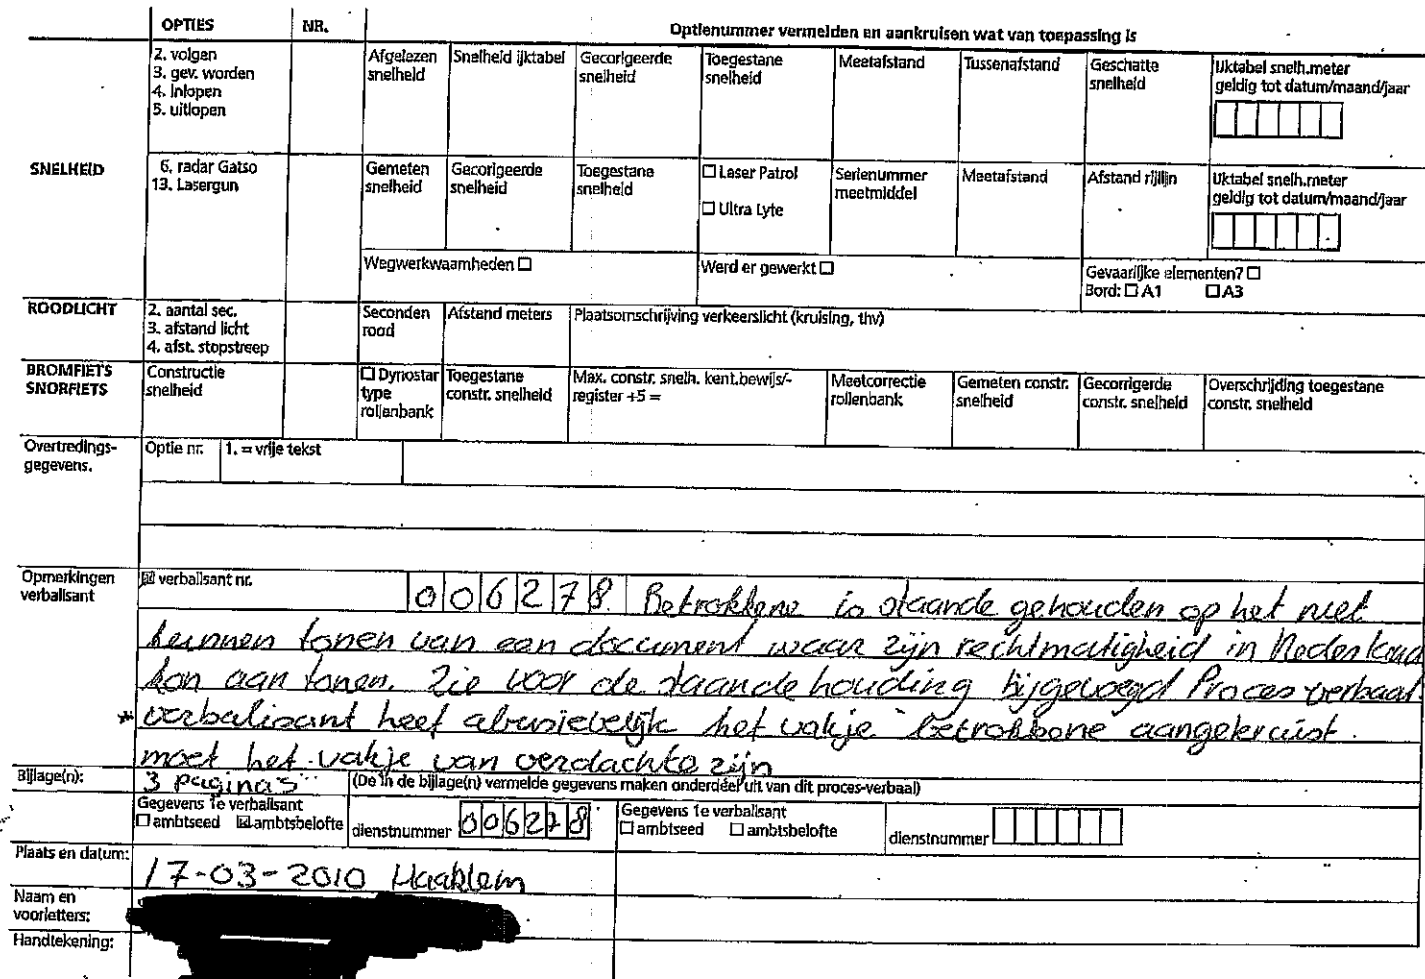 OPTIES NR. Optienummer vermelden en aankruisen wat van toepassing is
2. volgen
3. gev. worden
4. inlopen
5. uitlopen
Afgelezen snelheid
Snelheid ijktabel
Gecorigeerde snelheid
Toegestane snelheid
Meetafstand
Tussenafstand
Geschatte snelheid
IJktabel snelh.meter
geldig tot datum/maand/jaar
SNELHEID
6. radar Gatso
13. Lasergun
Gemeten snelheid
Gecorigeerde snelheid
Toegestane snelheid
Laser Patrol
Ultra Lyte
Serienummer meetmiddel
Meetafstand
Afstand rijlijn
IJktabel snelh.meter
geldig tot datum/maand/jaar
Wegwerkwaamheden
Werd er gewerkt
Gevaarlijke elementen?
Bord: A1 A3
ROODLICHT
2. aantal sec.
3. afstand licht
4. afst. stopstreep
Seconden rood
Afstand meters
Plaatsomschrijving verkeerslicht (kruising, thv)
BROMFIETS
SNORFIETS
Constructie snelheid
Dynostar type rollenbank
Toegestane constr. snelheid
Max. constr. snelh. kent.bewijs/-
register +5 =
Meetcorrectie rollenbank
Gemeten constr. snelheid
Gecorrigerde constr. snelheid
Overschrijding toegestane constr. snelheid
Overtredings-
gegevens.
Optie nr. 1. = vrije tekst
Opmerkingen
verbalisant
verbalisant nr. 006278. Betrokkene is staande gehouden op het niet
kunnen tonen van een document waar zijn rechtmatigheid in Nederland
kon aan tonen. Zie voor de staande houding bijgevoegd Proces verbaal
* verbalisant heef abusievelijk het vakje betrokkene aangekruist.
moet het vakje van verdachte zijn
Bijlage(n): 3 pagina's (De in de bijlage(n) vermelde gegevens maken onderdeel uit van dit proces-verbaal)
Gegevens 1e verbalisant
ambtseed ambtsbelofte dienstnummer 006278
Gegevens 1e verbalisant
ambtseed ambtsbelofte dienstnummer
Plaats en datum: 17-03-2010 Haarlem
Naam en
voorletters:
Handtekening: